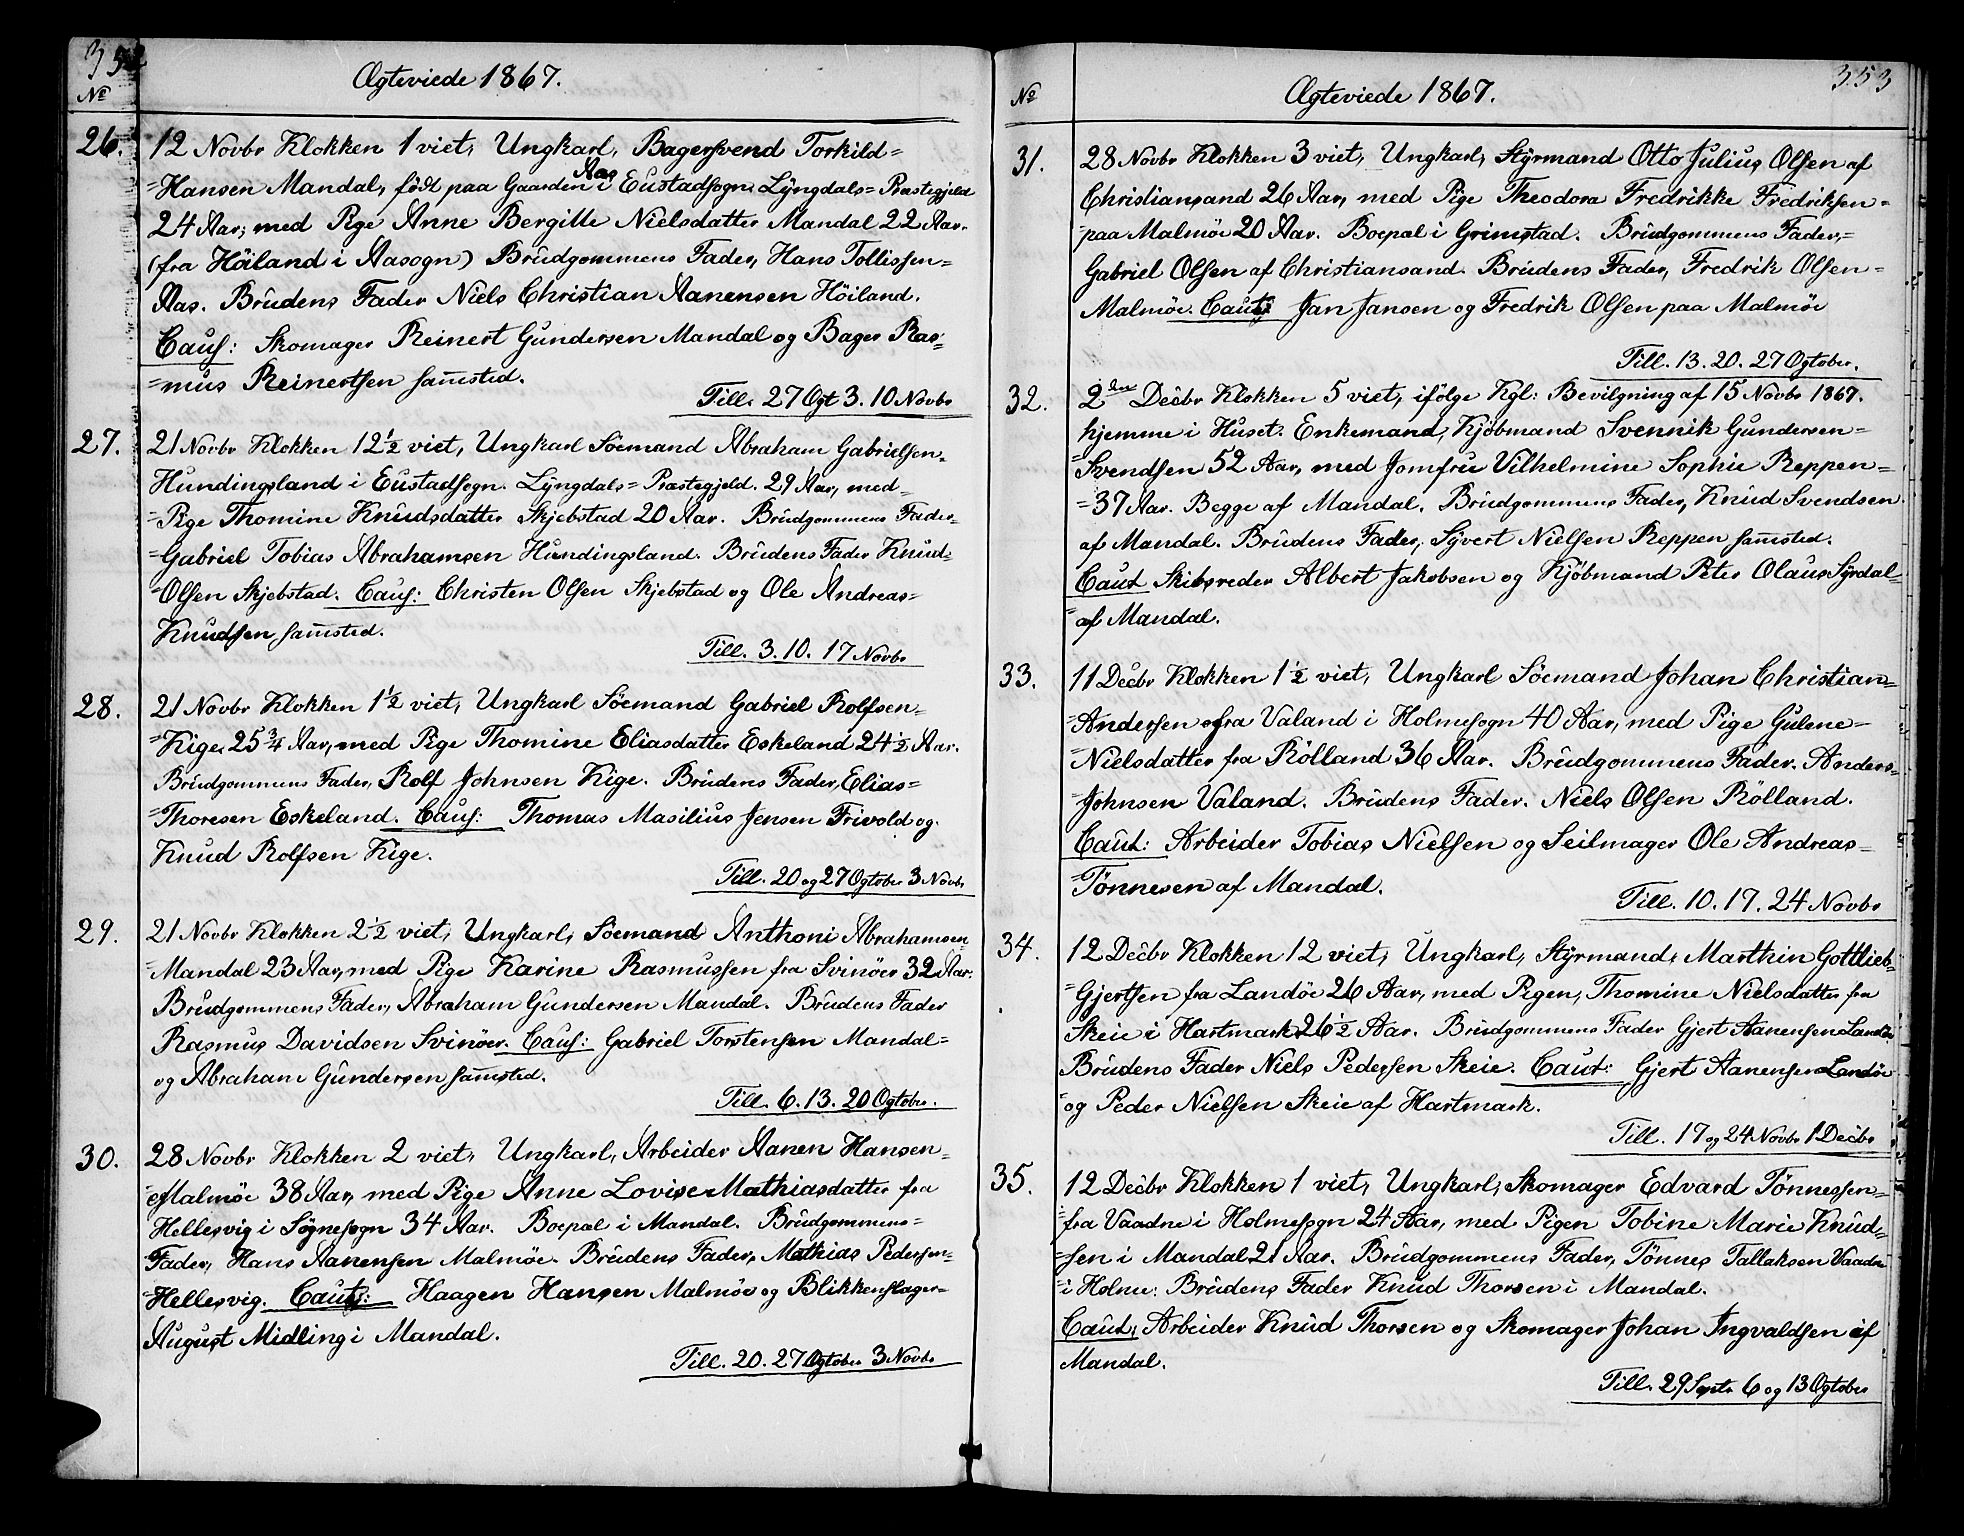 352
Ægteviede 1867.
No
26. 12 Novbr Klokken 1 viet, Ungkarl, Bagersvend Torkild=
=Hansen Mandal, født paa Gaarden Aas i Eustadsogn Lÿngdals= Præstegjeld
24 Aar; med Pige Anne Bergitte Nielsdatter Mandal 22 Aar.
(fra Höiland i Aasogn) Brudgommens Fader, Hans Tollissen=
Aas. Brudens Fader Niels Christian Aanensen Höiland.
Cauf: Skomager Reinert Gundersen Mandal og Bager Ras=
=mus Reinertsen samsted.
Till. 27 Ogt 3. 10 Novbr
27. 21 Novbr Klokken 12½ viet, Ungkarl Söemand Abraham Gabrielsen=
Hundingsland i Eustadsogn. Lÿngdals= Præstegjeld. 29 Aar, med=
=Pige Thomine Knudsdatter Skjebstad 20 Aar. Brudgommens Fader=
=Gabriel Tobias Abrahamsen Hundingsland. Brudens Fader Knud=
=Olsen Skjebstad. Cauf: Christen Olsen Skjebstad og Ole Andreas=
Knudsen samsted.
Till. 3. 10. 17 Novbr
28. 21 Novbr Klokken 1½ viet, Ungkarl Söemand Gabriel Rolfsen=
=Kige, 25¾ Aar, med Pige Thomine Eliasdatter Eskeland 24½ Aar.
Brudgommens Fader, Rolf Johnsen Kige. Brudens Fader, Elias=
=Thoresen Eskeland. Cauf: Thomas Masilius Jensen Frivold og
Knud Rolfsen Kige.
Till. 20 og 27 Ogtober 3 Novbr
29. 21 Novbr Klokken 2½ viet, Ungkarl, Söemand Anthoni Abrahamsen
=Mandal 23 Aar, med Pige Karine Rasmussen fra Svinöer 32 Aar.
Brudgommens Fader, Abraham Gundersen Mandal. Brudens Fader
Rasmus Davidsen Svinöer. Cauf: Gabriel Torstensen Mandal=
og Abraham Gundersen samsted.
Till. 6. 13. 20 Ogtober.
30. 28 Novbr Klokken 2 viet, Ungkarl, Arbeider Aanen Hansen=
=Malmöe 38 Aar, med Pige Anne Lovise Mathiasdatter fra
Hellesvig i Sögnesogn 34 Aar. Boepæl i Mandal. Brudgommens=
Fader, Hans Aanensen Malmöe. Brudens Fader, Mathias Pedersen=
=Hellesvig. Caut: Haagen Hansen Malmöe og Blikkenslager=
August Midling i Mandal.
Till. 20. 27 Ogtober 3 Novbr
353
Ægteviede 1867.
No
31. 28 Novbr Klokken 3 viet, Ungkarl, Stÿrmand Otto Julius Olsen af
Christiansand 26 Aar, med Pige Theodora Fredrikke Fredriksen=
=paa Malmöe 20 Aar. Boepæl i Grimstad. Brudgommens Fader,=
Gabriel Olsen af Christiansand. Brudens Fader, Fredrik Olsen=
Malmöe. Caut: Jan Jansen og Fredrik Olsen paa Malmöe
Till. 13. 20. 27 Ogtober.
32. 2den Decbr Klokken 5 viet, ifölge Kgl: Bevilgning af 15 Novbr 1867.
hjemme i Huset. Enkemand, Kjöbmand Svennik Gundersen=
=Svendsen 52 Aar, med Jomfru Vilhelmine Sophie Reppen=
=37 Aar. Begge af Mandal. Brudgommens Fader, Knud Svendsen
af Mandal. Brudens Fader, Sÿvert Nielsen Reppen samsted.
Caut Skibsreder Albert Jakobsen og Kjöbmand Peter Olaus Sÿrdal=
=af Mandal.
33. 11 Decbr Klokken 1½ viet, Ungkarl Söemand Johan Christian=
=Andersen fra Valand i Holmesogn 40 Aar, med Pige Gulene=
=Nielsdatter fra Rölland 36 Aar. Brudgommens Fader. Anders=
=Johnsen Valand. Brudens Fader. Niels Olsen Rölland.
Caut: Arbeider Tobias Nielsen og Seilmager Ole Andreas=
=Tönnesen af Mandal.
Till. 10. 17. 24 Novbr
34. 12 Decbr Klokken 12 viet, Ungkarl, Stÿrmand, Marthin Gottlieb=
=Gjertsen fra Landöe 26 Aar, med Pigen, Thomine Nielsdatter fra
Skeie i Hartmark 26½ Aar. Brudgommens Fader Gjert Aanensen Landöe
Brudens Fader Niels Pedersen Skeie. Caut: Gjert Aanensen Landöe
og Peder Nielsen Skeie af Hartmark.
Till. 17 og 24 Novbr 1 Decbr
35. 12 Decbr Klokken 1 viet, Ungkarl, Skomager Edvard Tönnessen=
=fra Vaadne i Holmesogn 24 Aar, med Pigen Tobine Marie Knud=
=sen i Mandal 21 Aar. Brudgommens Fader, Tönnes Tallaksen Vaadne
=i Holme: Brudens Fader Knud Thorsen i Mandal.
Caut, Arbeider Knud Thorsen og Skomager Johan Ingvaldsen af
Mandal.
Till. 29 Septr 6 og 13 Ogtober